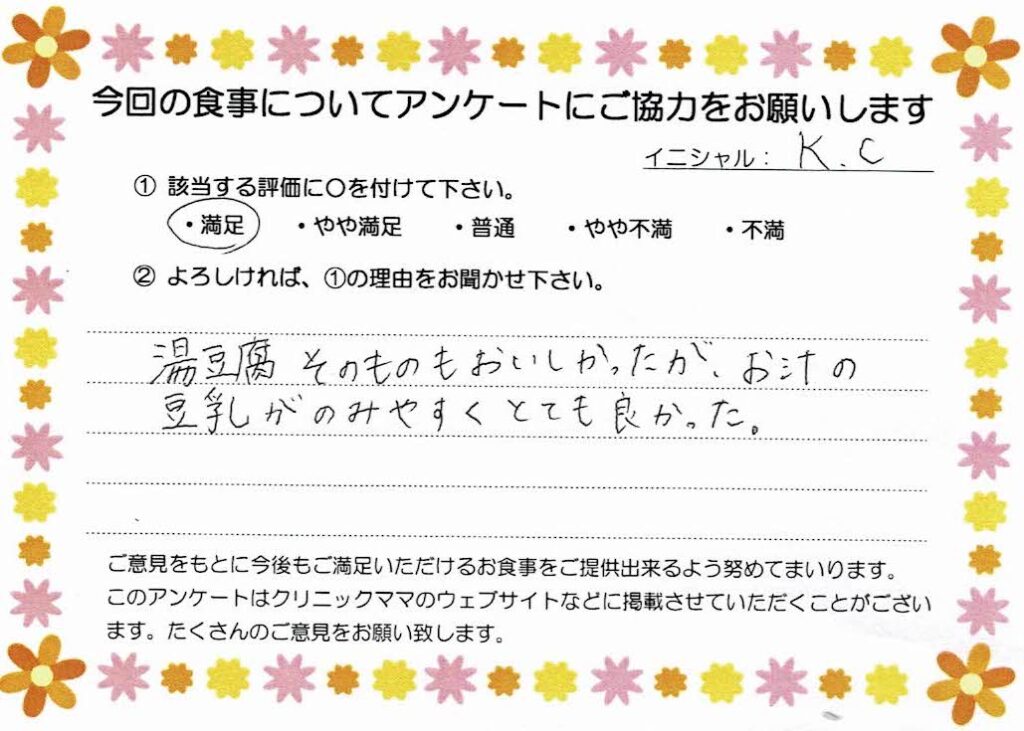 今回の食事についてアンケートにご協力をお願いします
イニシャル： K.C
① 該当する評価に〇を付けて下さい。
・満足 ・やや満足 ・普通 ・やや不満 ・不満
② よろしければ、①の理由をお聞かせ下さい。
湯豆腐そのものもおいしかったが、お汁の
豆乳がのみやすくとても良かった。
ご意見をもとに今後もご満足いただけるお食事をご提供出来るよう努めてまいります。
このアンケートはクリニックママのウェブサイトなどに掲載させていただくことがござい
ます。たくさんのご意見をお願い致します。